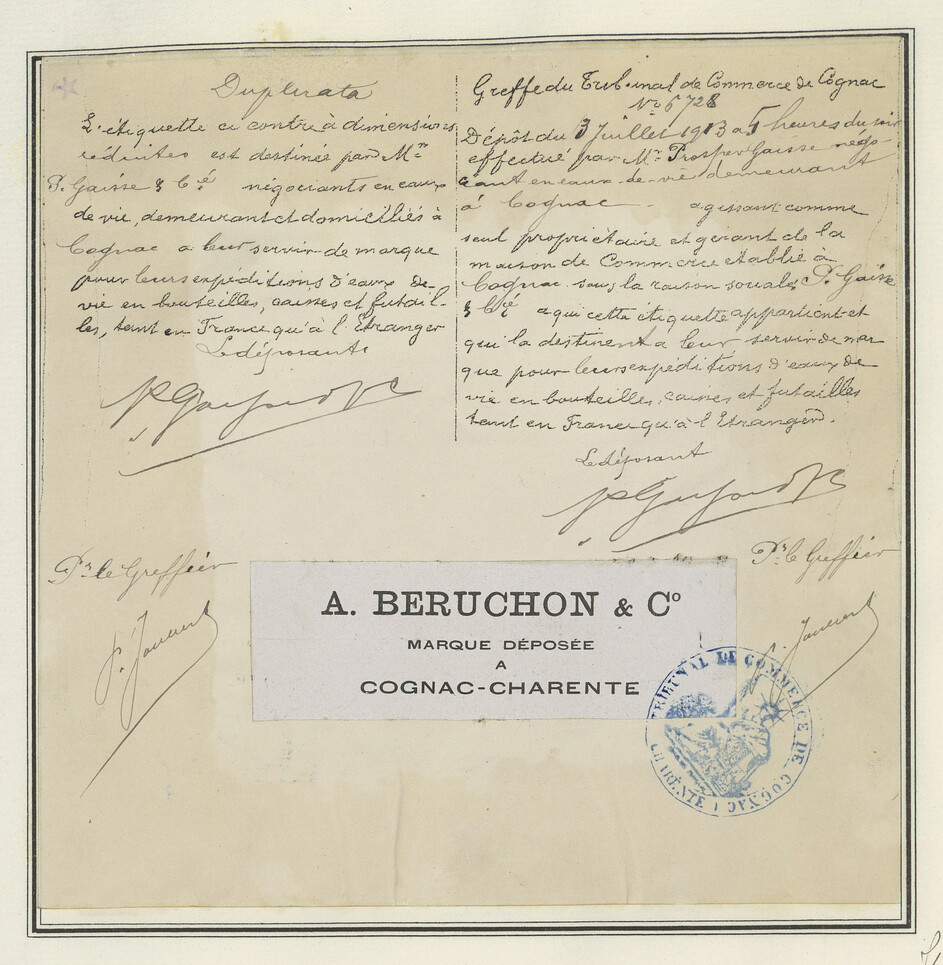 Duplicata
L'étiquette ci contre à dimensions
réduites est destinée par Mrs
P. Gaisse & Cié négociants en eaux
de vie, demeurant et domiciliés à
Cognac a leur servir de marque
pour leurs expéditions d'eaux de
vie en bouteilles, caisses et futail-
les, tant en France qu'à l'Etranger
Le déposant
Greffe du Tribunal de Commerce de Cognac
No 6728
Dépôt du 3 Juillet 1913 a 5 heures du soir
effectué par Mr Prosper Gaisse négo-
ciant en eaux-de-vie demeurant
à Cognac - agissant comme
seul propriétaire et gérant de la
maison de Commerce établie à
Cognac sous la raison sociale P. Gaisse
& Cié a qui cette étiquette appartient et
qui la destinent a leur servir de mar
que pour leurs expéditions d'eaux de
vie en bouteilles, caisses et futailles
tant en France qu'à l'Etranger.
Le déposant
Pr le Greffier
Pr le Greffier
A. BERUCHON & Co
MARQUE DÉPOSÉE
A
COGNAC-CHARENTE
TRIBUNAL DE COMMERCE DE COGNAC
CHARENTE